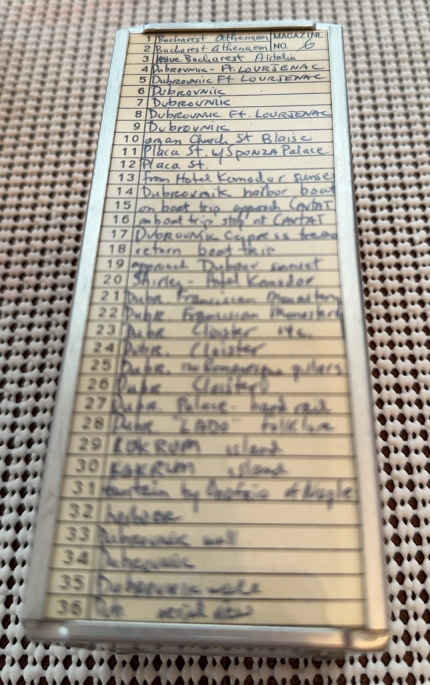 1 Bucharest Athenaem MAGAZINE
2 Bucharest Athenaem NO. 6
3 leave Bucharest Alitalia
4 Dubrovnik - Ft. LOVRJENAC
5 Dubrovnik Ft LOVRJENAC
6 DUBROVNIK
7 DUBROVNIK
8 DUBROVNIK Ft. LOVRJENAC
9 DUBROVNIK
10 organ Church St Blaise
11 Placa St. w/SPONZA Palace
12 Placa St.
13 from Hotel Komodor sunset
14 Dubrovnik harbor boat
15 on boat trip approach CAVTAT
16 on boat trip stop at CAVTAT
17 DUBROVNIK Cypress trees
18 return boat trip
19 approach Dubrov sunset
20 Shirley - Hotel Komodor
21 Dubr Franciscan Monastery
22 Dubr Franciscan Monastery
23 Dubr Cloister 14c.
24 Dubr. Cloister
25 Dubr. Romanesque pillars
26 Dubr Cloister
27 Dubr. Palace - hand rail
28 Dubr "LADO" folklore
29 LOKRUM island
30 LOKRUM island
31 fountain by Onofrio of Naples
32 harbor
33 Dubrovnik wall
34 Dubrovnik
35 Dubrovnik walls
36 Dub